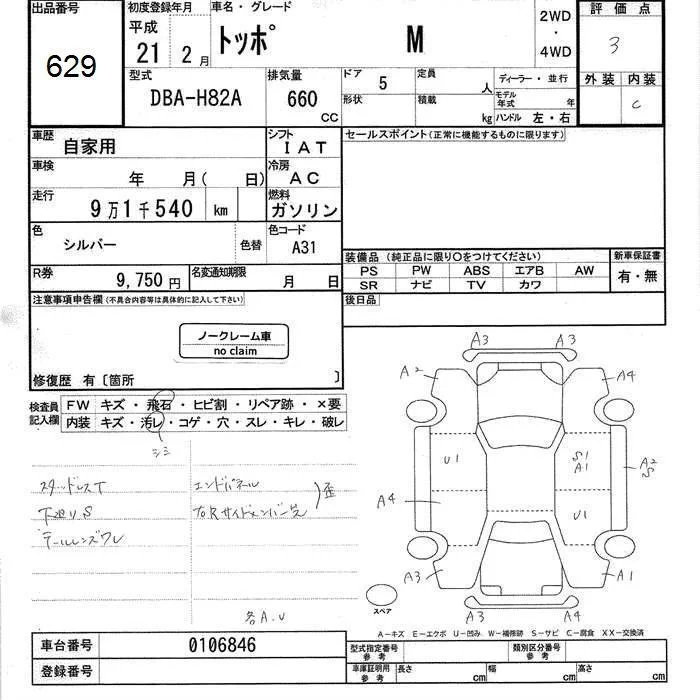 出品番号
629
初度登録年月
平成
21 2月
車名・グレード
トッポ M
2WD
・
4WD
評価点
3
型式
DBA-H82A
排気量
660 CC
ドア 5
定員 人
形状
積載 kg
ディーラー・並行
モデル年式 年
ハンドル 左・右
外装 内装
C
車歴
自家用
シフト
IAT
セールスポイント(正常に機能するものに限ります)
車検
年 月( 日)
冷房
AC
走行
9万1千540 km
燃料
ガソリン
色
シルバー
色替
色コード
A31
装備品(純正品に限り〇をつけてください)
新車保証書
PS PW ABS エアB AW
SR ナビ TV カワ
有・無
R券
9,750円
名変通知期限
月 日
後日品
注意事項申告欄(不具合内容等は具体的に記入して下さい)
ノークレーム車
no claim
修復歴 有〔箇所 〕
検査員記入欄
FW キズ・飛石・ヒビ割・リペア跡・×要
内装 キズ・汚レ・コゲ・穴・スレ・キレ・破レ
シミ
スタッドレスT
下廻りS
テールレンズワレ
エンドパネル
左Rサイドメンバー先
歪
各A.U
A3 A3
A2 A4
U1
S1
A1
A2
S
A4
U1
A3 A1
A3 A4
スペア
A-キズ E-エクボ U-凹み W-補修跡 S-サビ C-腐食 XX-交換済
車台番号
0106846
登録番号
型式指定番号
参考
類別区分番号
参考
車庫証明用
参考
長さ cm
幅 cm
高さ cm